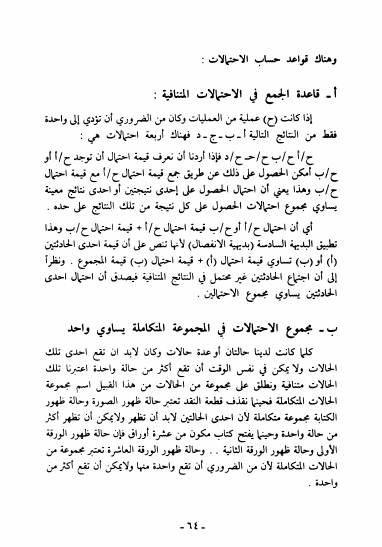 وهناك قواعد حساب الاحتمالات :
أ - قاعدة الجمع في الاحتمالات المتنافية :
إذا كانت (ح) عملية من العمليات وكان من الضروري أن تؤدي إلى واحدة
فقط من النتائج التالية أ - ب - ج - د فهناك أربعة احتمالات هي :
ح/أ ح/ب ح/جـ ح/د فإذا أردنا أن نعرف قيمة احتمال أن توجد ح/أ أو
ح/ب أمكن الحصول على ذلك عن طريق جمع قيمة احتمال ح/أ مع قيمة احتمال
ح/ب وهذا يعني أن احتمال الحصول على إحدى نتيجتين أو احدى نتائج معينة
يساوي مجموع احتمالات الحصول على كل نتيجة من تلك النتائج على حده .
أي أن احتمال ح/أ أو ح/ب قيمة احتمال ح/أ + قيمة احتمال ح/ب وهذا
تطبيق البديهة السادسة (بديهية الانفصال) لأنها تنص على أن قيمة احدى الحادثتين
(أ) أو (ب) تساوي قيمة احتمال (أ) + قيمة احتمال (ب) قيمة المجموع . ونظراً
إلى أن اجتماع الحادثتين غير محتمل في النتائج المتنافية فيصدق أن احتمال احدى
الحادثتين يساوي مجموع الاحتمالين .
ب - مجموع الاحتمالات في المجموعة المتكاملة يساوي واحد
كلما كانت لدينا حالتان أو عدة حالات وكان لابد ان تقع احدى تلك
الحالات ولا يمكن في نفس الوقت أن تقع أكثر من حالة واحدة اعتبرنا تلك
الحالات متنافية ونطلق على مجموعة من الحالات من هذا القبيل اسم مجموعة
الحالات المتكاملة فحينما نقذف قطعة النقد تعتبر حالة ظهور الصورة وحالة ظهور
الكتابة مجموعة متكاملة لأن احدى الحالتين لابد أن تظهر ولايمكن أن تظهر أكثر
من حالة واحدة وحينما يفتح كتاب مكون من عشرة أوراق فإن حالة ظهور الورقة
الأولى وحالة ظهور الورقة الثانية . . وحالة ظهور الورقة العاشرة تعتبر مجموعة من
الحالات المتكاملة لأن من الضروري أن تقع واحدة منها ولايمكن أن تقع أكثر من
واحدة .
- ٦٤ -